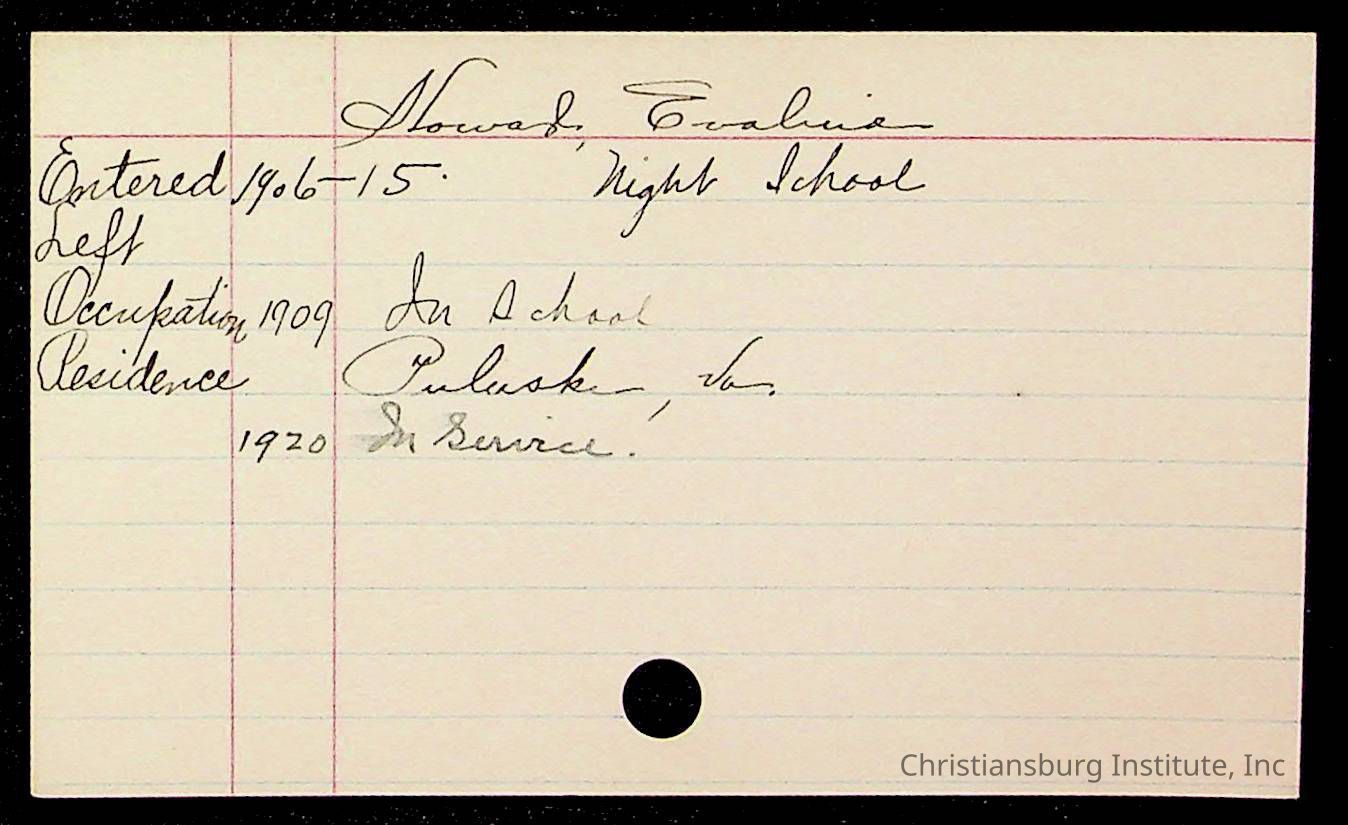 Howard, Evalina
Entered 1906-15. Night School
Left
Occupation 1909 In School
Residence Pulaski, Va.
1920 In Service.
Christiansburg Institute, Inc